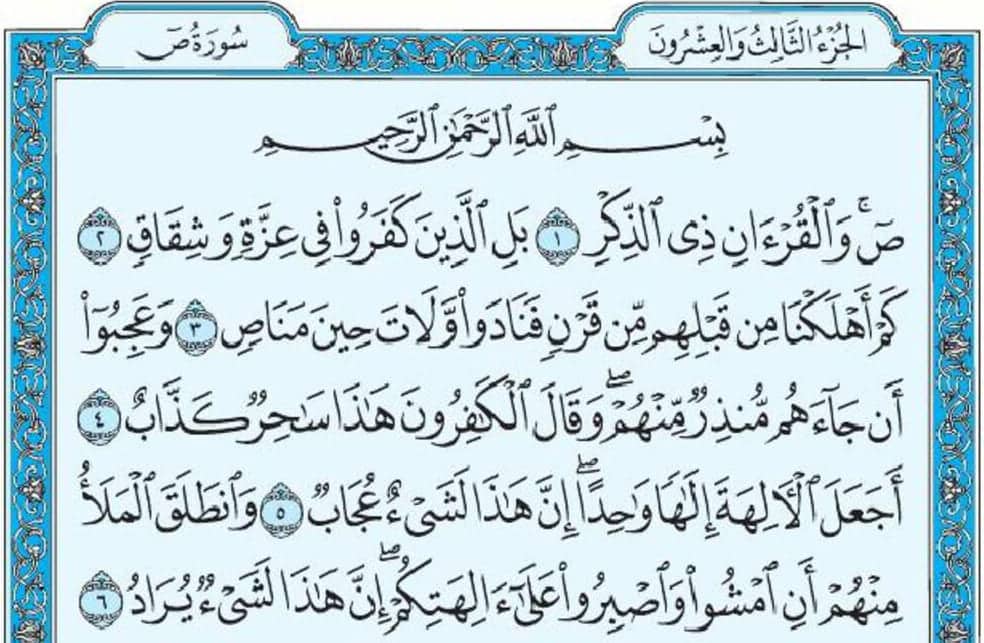 الجُزْءُ الثَّالِثُ وَالعِشْرُونَ
سُورَةُ صٓ
بِسْمِ ٱللَّهِ ٱلرَّحْمَٰنِ ٱلرَّحِيمِ
صٓۚ وَٱلْقُرْءَانِ ذِى ٱلذِّكْرِ ١ بَلِ ٱلَّذِينَ كَفَرُوا۟ فِى عِزَّةٍ وَشِقَاقٍ ٢
كَمْ أَهْلَكْنَا مِن قَبْلِهِم مِّن قَرْنٍ فَنَادَوا۟ وَّلَاتَ حِينَ مَنَاصٍ ٣ وَعَجِبُوٓا۟
أَن جَآءَهُم مُّنذِرٌ مِّنْهُمْۖ وَقَالَ ٱلْكَٰفِرُونَ هَٰذَا سَٰحِرٌ كَذَّابٌ ٤
أَجَعَلَ ٱلْءَالِهَةَ إِلَٰهًا وَٰحِدًاۖ إِنَّ هَٰذَا لَشَىْءٌ عُجَابٌ ٥ وَٱنطَلَقَ ٱلْمَلَأُ
مِنْهُمْ أَنِ ٱمْشُوا۟ وَٱصْبِرُوا۟ عَلَىٰٓ ءَالِهَتِكُمْۖ إِنَّ هَٰذَا لَشَىْءٌ يُرَادُ ٦